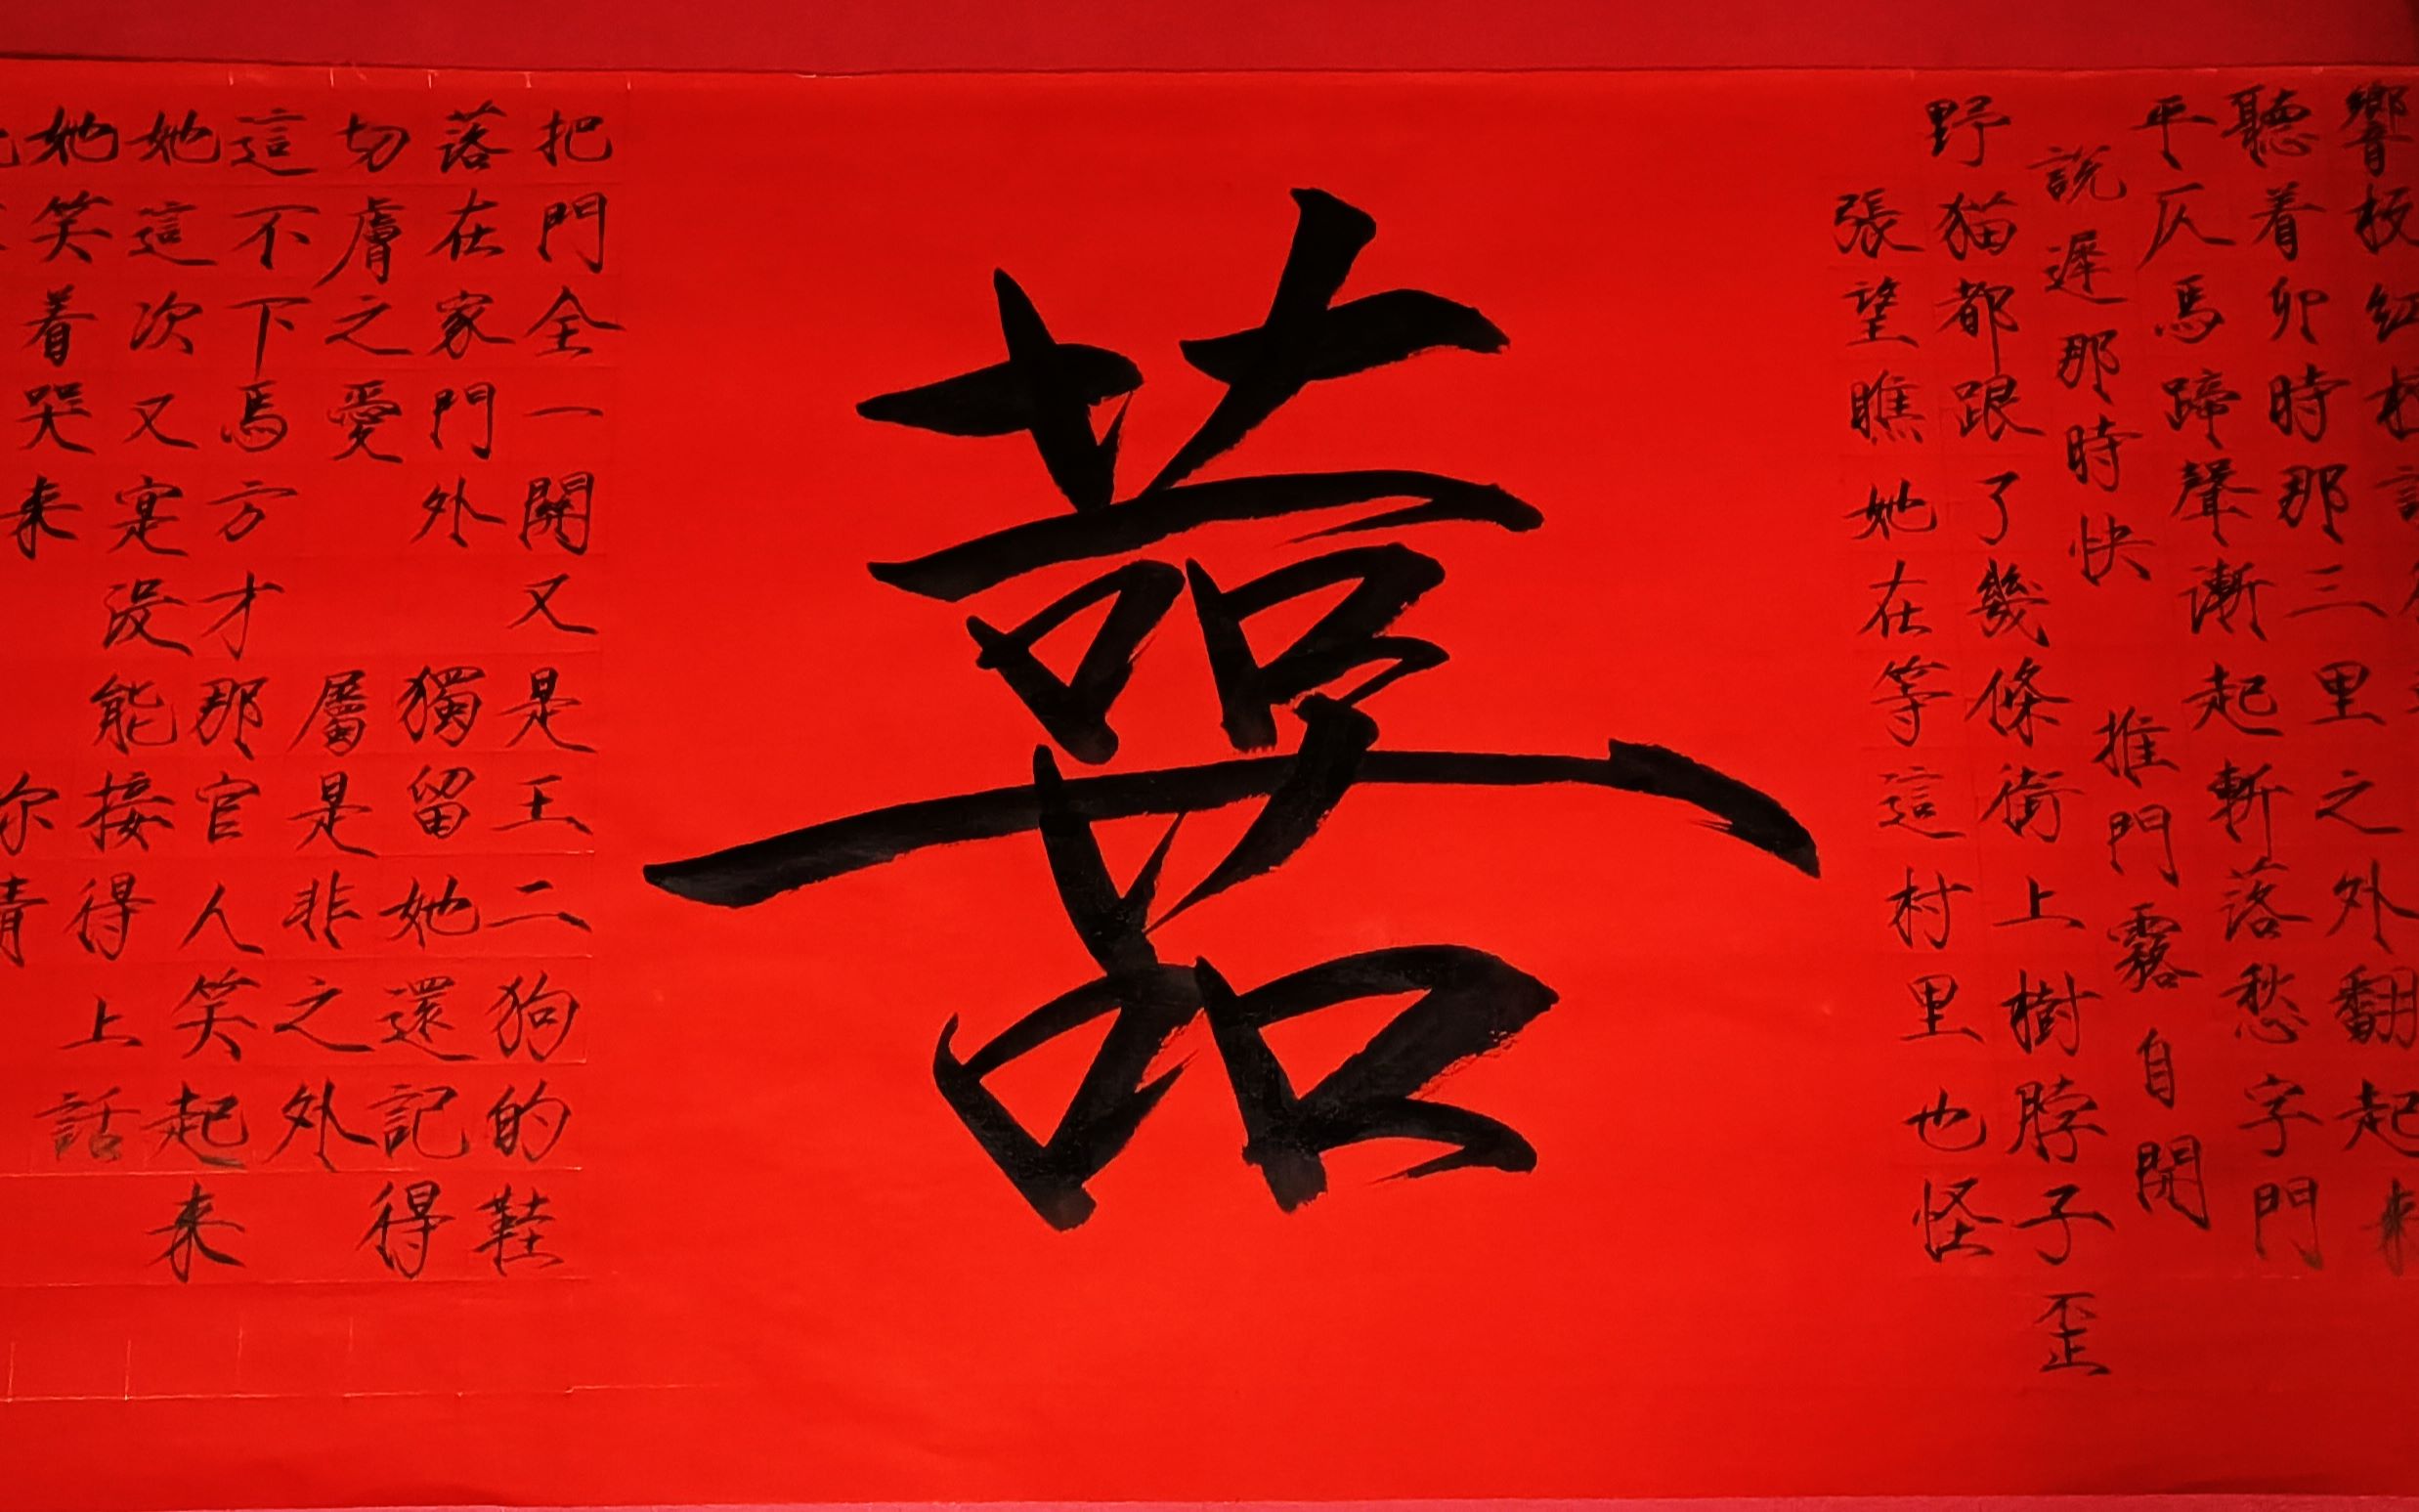 響
聽着卯時那三里之外翻起来
平仄馬蹄聲漸起斬落愁字門
説遲那時快 推門霧自開
野猫都跟了幾條街上樹脖子歪
張望瞧她在等這村里也怪
囍
把門全一關又是王二狗的鞋
落在家門外 獨留她還記得
切膚之愛 屬是非之外
這不下馬方才 那官人笑起来
她這次又寔没能接得上話
她笑着哭来